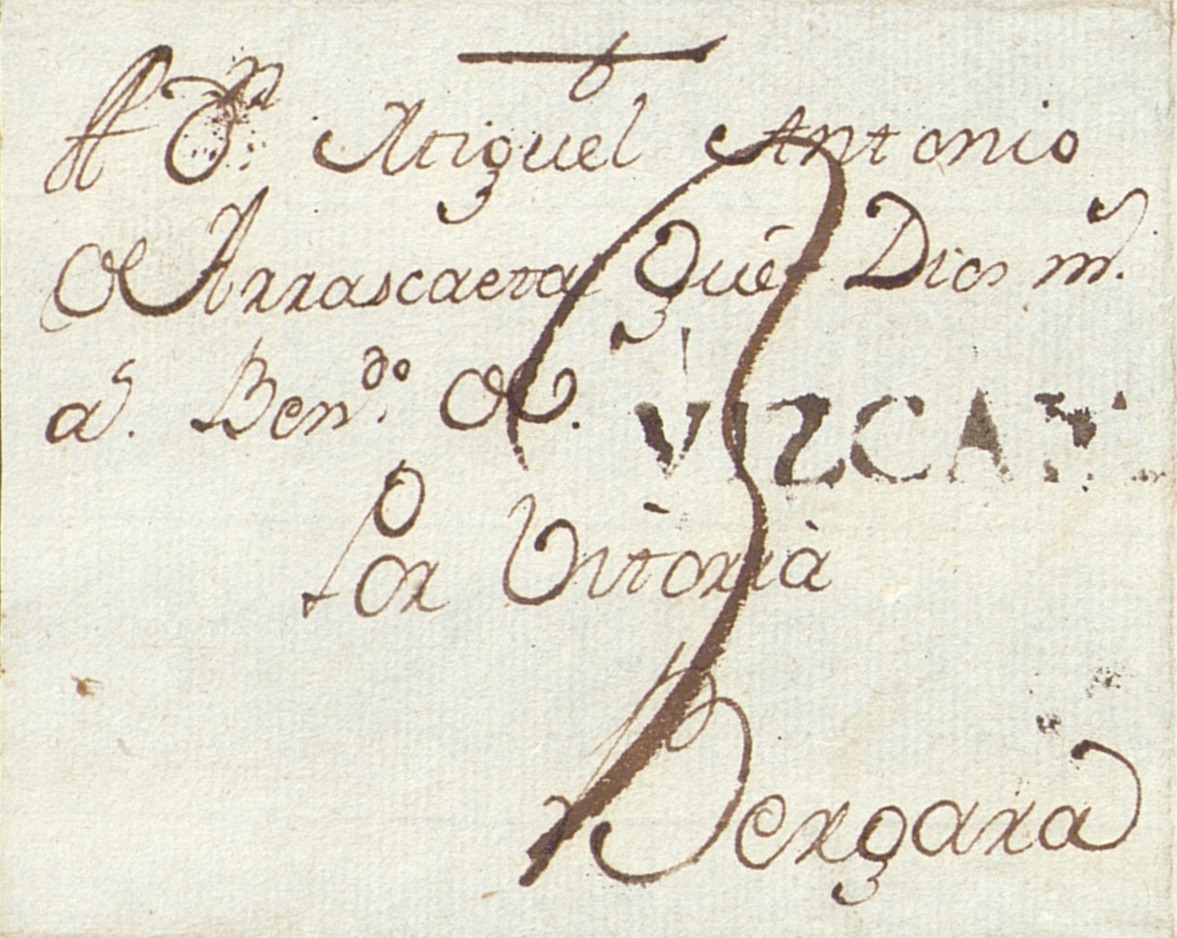 A Dn. Miguel Antonio
de Arrascaeta Que Dios ms.
as. Ben do. de V.
VIZCAY
Por Vitòrià
Bergara
3